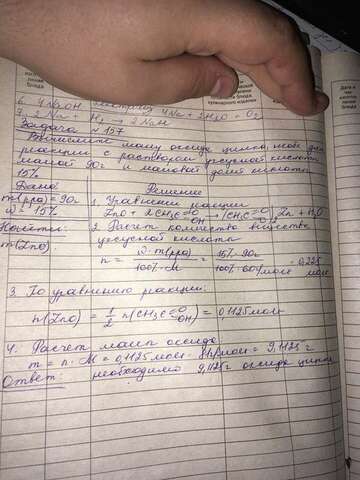 блюда
кулинарного изделия
блюда
Дата и
час
блюда
6. 4NaOH 4Na + 2H₂O + O₂
2Na + H₂ → 2NaH
Задача № 157
Вычислите массу оксида цинка,
реакции с раствором уксусной кислоты
массой 90г и массовой долей кислоты
15%
Дано: Решение
m(рра) = 90г 1. Уравнение реакции
ω = 15% ZnO + 2CH₃C=O OH → (CH₃C=O O)₂Zn + H₂O
Найти: 2. Расчет количества вещества
m(ZnO) уксусной кислоты
n = ω · m(рра) / 100% · M = 15% · 90г / 100% · 60г/моль = 0,225 моль
3. По уравнению реакции:
n(ZnO) = 1/2 n(CH₃C=O OH) = 0,1125 моль
4. Расчет массы оксида
m = n · M = 0,1125 моль · 81г/моль = 9,1125 г
Ответ: необходимо 9,1125г оксида цинка